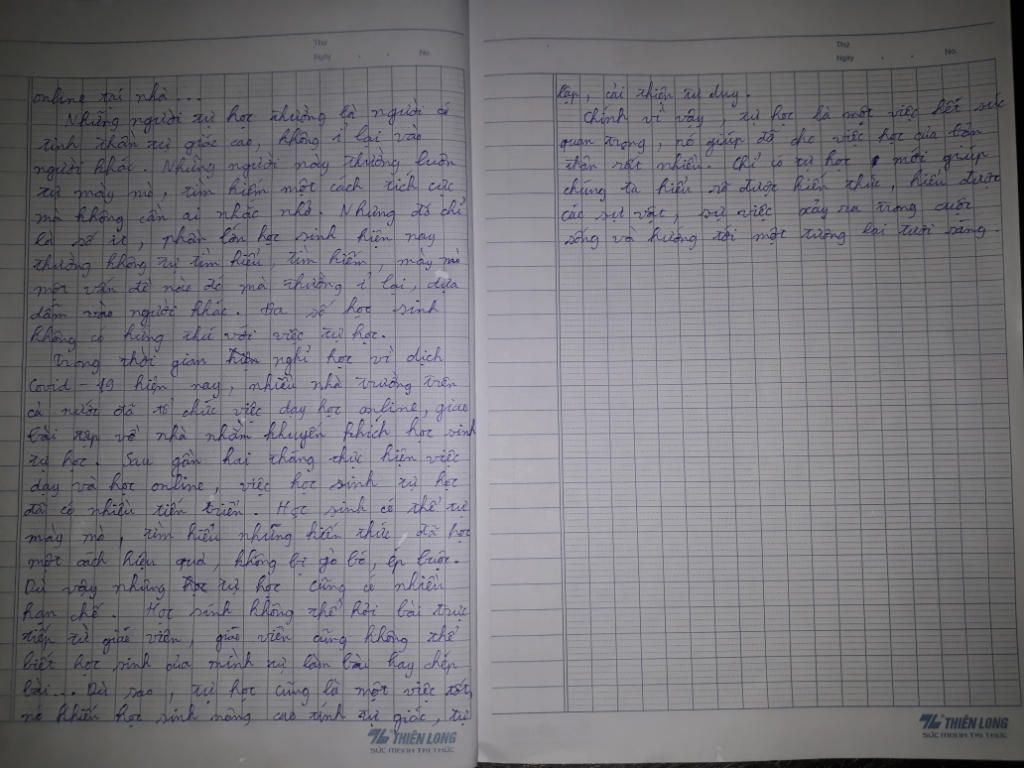 Thứ
Ngày
No.
online tại nhà...
Những người tự học thường là người có
tinh thần tự giác cao, không ỉ lại vào
người khác. Những người này thường luôn
tự mày mò, tìm kiếm một cách tích cực
mà không cần ai nhắc nhở. Nhưng đó chỉ
là số ít, phần lớn học sinh hiện nay
thường không tự tìm hiểu, tìm kiếm, mày mò
một vấn đề nào đó mà thường ỉ lại, dựa
dẫm vào người khác. Đa số học sinh
không có hứng thú với việc tự học.
Trong thời gian nghỉ học vì dịch
Covid-19 hiện nay, nhiều nhà trường trên
cả nước đã tổ chức việc dạy học online, giao
bài tập về nhà nhằm khuyến khích học sinh
tự học. Sau gần hai tháng thực hiện việc
dạy và học online, việc học sinh tự học
đã có nhiều tiến triển. Học sinh có thể tự
mày mò, tìm hiểu những kiến thức đã học
một cách hiệu quả, không bị gò bó, ép buộc.
Dù vậy nhưng tự học cũng có nhiều
hạn chế. Học sinh không thể hỏi bài trực
tiếp từ giáo viên, giáo viên cũng không thể
biết học sinh của mình tự làm bài hay chép
bài... Dù sao, tự học cũng là một việc tốt,
nó khiến học sinh nâng cao tính tự giác, tự
THIÊN LONG
SỨC MẠNH TRI THỨC
Thứ
Ngày
No.
lập, cải thiện tư duy.
Chính vì vậy, tự học là một việc hết sức
quan trọng, nó giúp đỡ cho việc học của bản
thân rất nhiều. Chỉ có tự học mới giúp
chúng ta hiểu rõ được kiến thức, hiểu được
các sự vật, sự việc xảy ra trong cuộc
sống và hướng tới một tương lai tươi sáng.
THIÊN LONG
SỨC MẠNH TRI THỨC